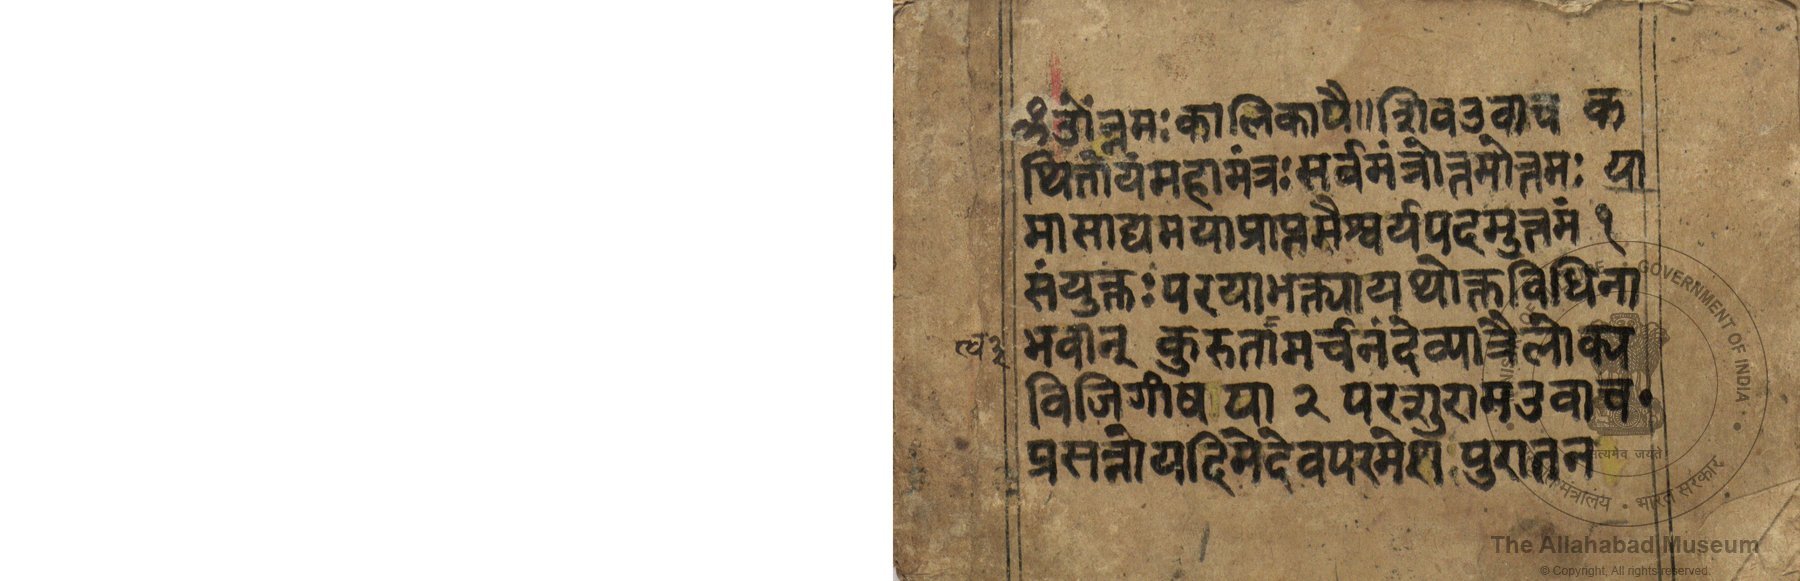 ॐनमः कालिकायै॥ शिव उवाच क
थितोयंमहामंत्रः सर्वमंत्रोत्तमोत्तमः या
मासाद्यमयाप्राप्तमैश्वर्यपदमुत्तमं १
संयुक्तः परयाभक्त्यायथोक्तविधिना
भवान् कुरुतामर्चनंदेव्यात्रैलोक्य
विजिगीषया २ परशुरामउवाच
प्रसन्नोयदिमेदेवपरमेश पुरातन
GOVERNMENT OF INDIA
सत्यमेव जयते
भारत सरकार
The Allahabad Museum
© Copyright, All rights reserved.